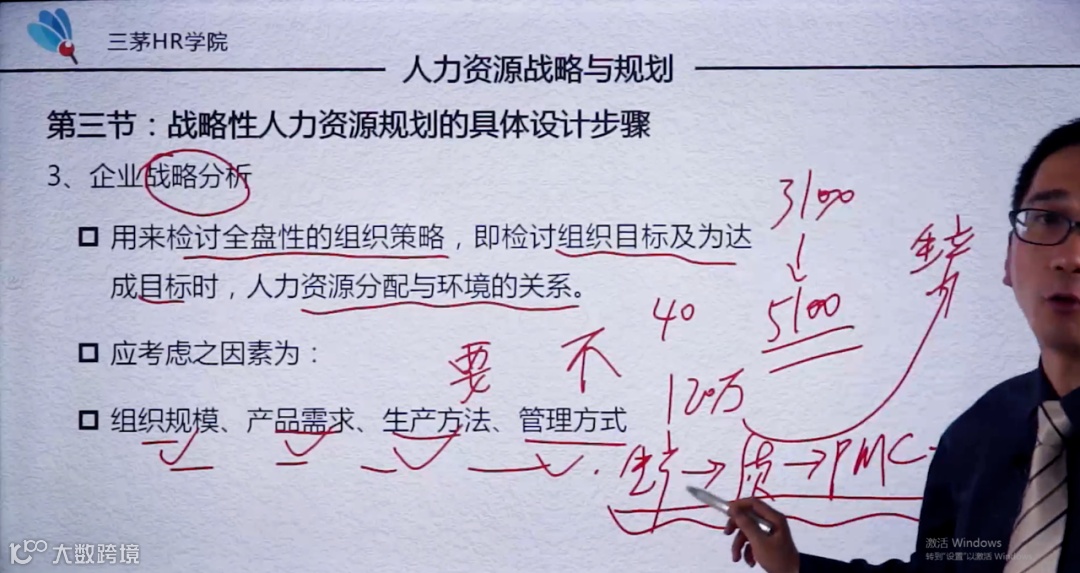 三茅HR学院
人力资源战略与规划
第三节：战略性人力资源规划的具体设计步骤
3、企业战略分析
用来检讨全盘性的组织策略，即检讨组织目标及为达
成目标时，人力资源分配与环境的关系。
应考虑之因素为：
组织规模、产品需求、生产方法、管理方式
3100
5100
40
要 不
120万
生产→质→PMC
激活 Windows
转到"设置"以激活 Win
大数跨境